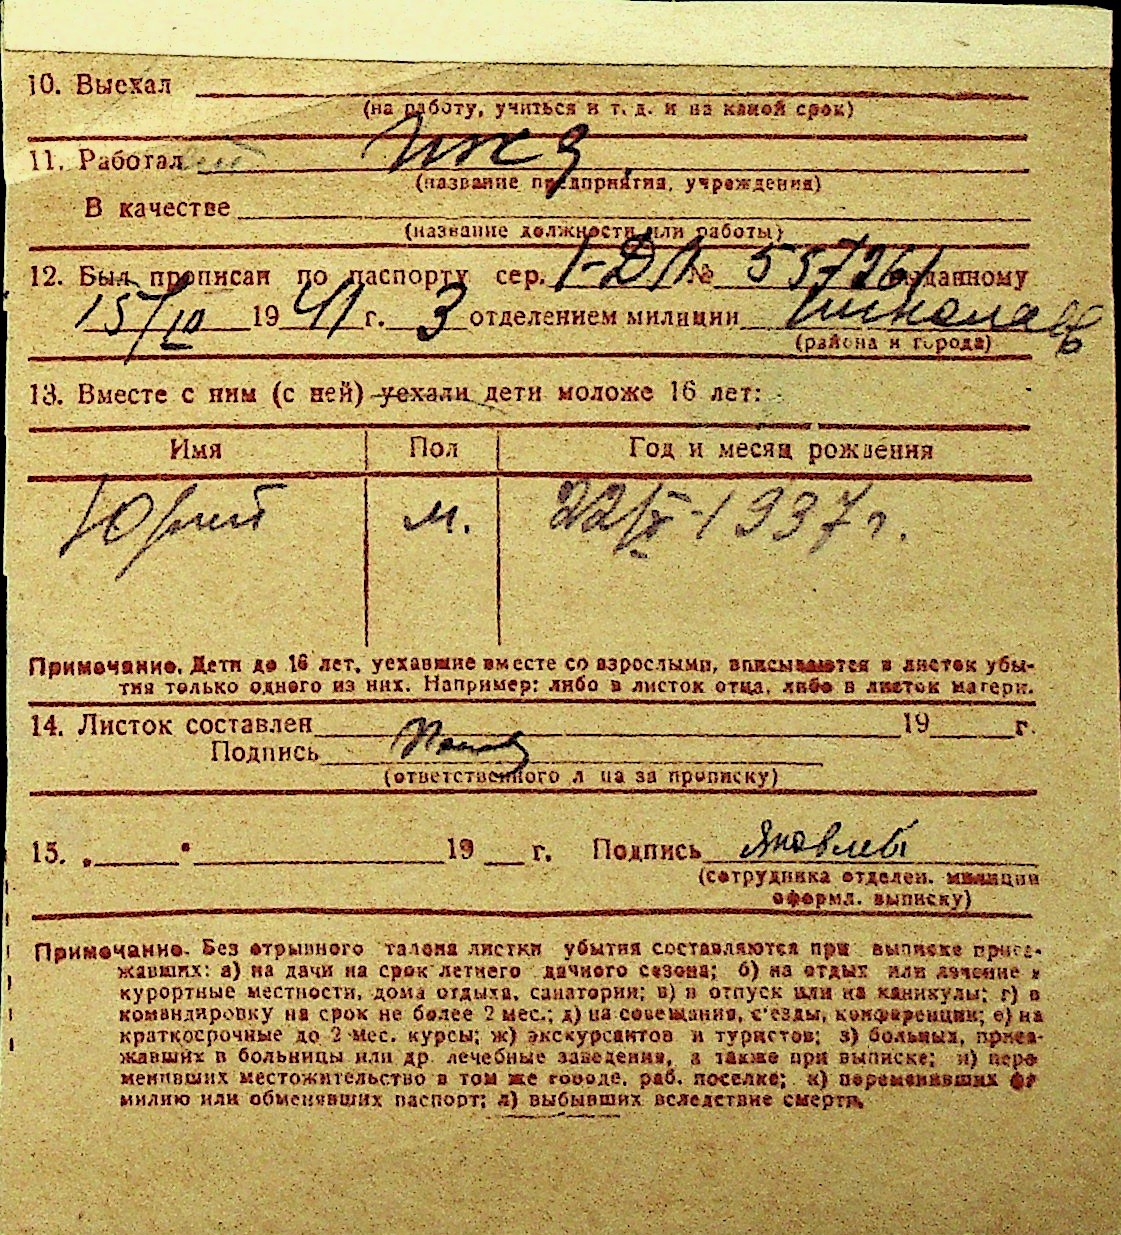 10. Выехал
(на работу, учиться и т. д. и на какой срок)
11. Работал
(название предприятия, учреждения)
В качестве
(название должности или работы)
12. Был прописан по паспорту сер. I-ДЛ № 557261 выданному
15/IX 1941 г. 3 отделением милиции
(района и города)
13. Вместе с ним (с ней) уехали дети моложе 16 лет:
Имя Пол Год и месяц рождения
Юрий м. 22/IX-1937 г.
Примечание. Дети до 16 лет, уехавшие вместе со взрослыми, вписываются в листок убы-
тия только одного из них. Например: либо в листок отца, либо в листок матери.
14. Листок составлен 19 г.
Подпись
(ответственного лица за прописку)
15. „ " 19 г. Подпись Яковлев
(сотрудника отделен. милиции
оформл. выписку)
Примечание. Без отрывного талона листки убытия составляются при выписке приез-
жавших: а) на дачи на срок летнего дачного сезона; б) на отдых или лечение в
курортные местности, дома отдыха, санатории; в) в отпуск или на каникулы; г) в
командировку на срок не более 2 мес.; д) на совещания, с'езды, конференции; е) на
краткосрочные до 2 мес. курсы; ж) экскурсантов и туристов; з) больных, приез-
жавших в больницы или др. лечебные заведения, а также при выписке; и) пере
менивших местожительство в том же городе, раб. поселке; к) переменивших фа
милию или обменявших паспорт; л) выбывших вследствие смерти.